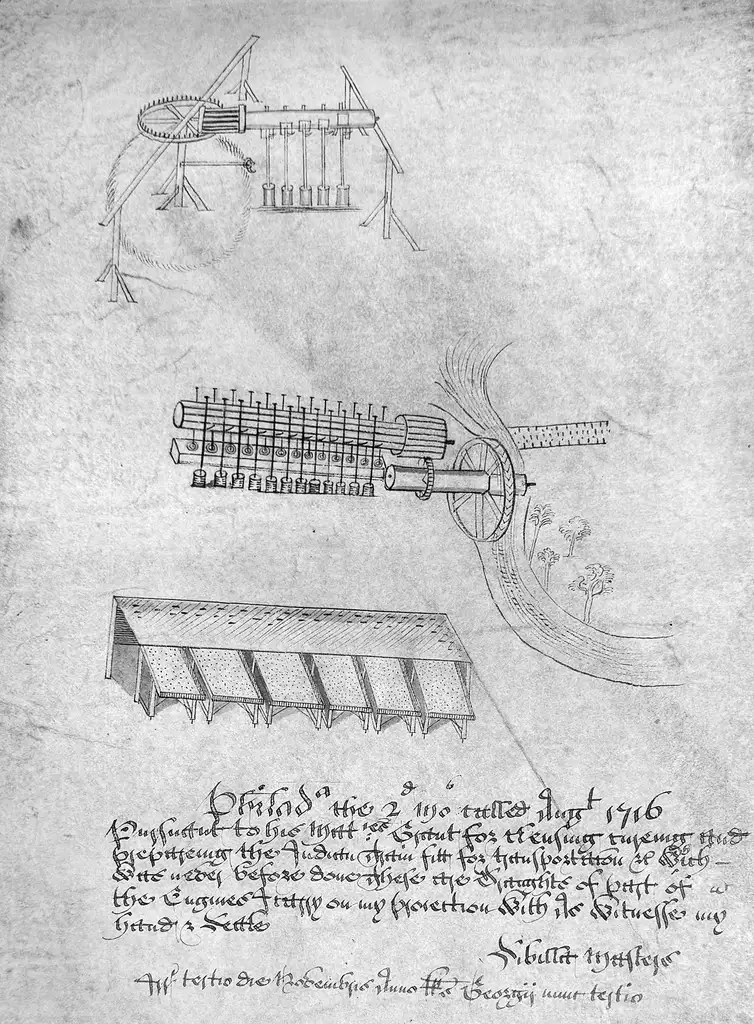 Philad^a the 2^d mo called Aug^t 1716
Pursuant to his Mat^ies Grant for Clensing cureing and
prepareing the Indian grain fitt for transportation &c Which
Was never before done these are Draughts of part of
the Engines I carry on my proiection With As Witnesse my
hand & Seale
Sibilla Masters
tertio die Novembris Anno RRs Georgij nunc tertio